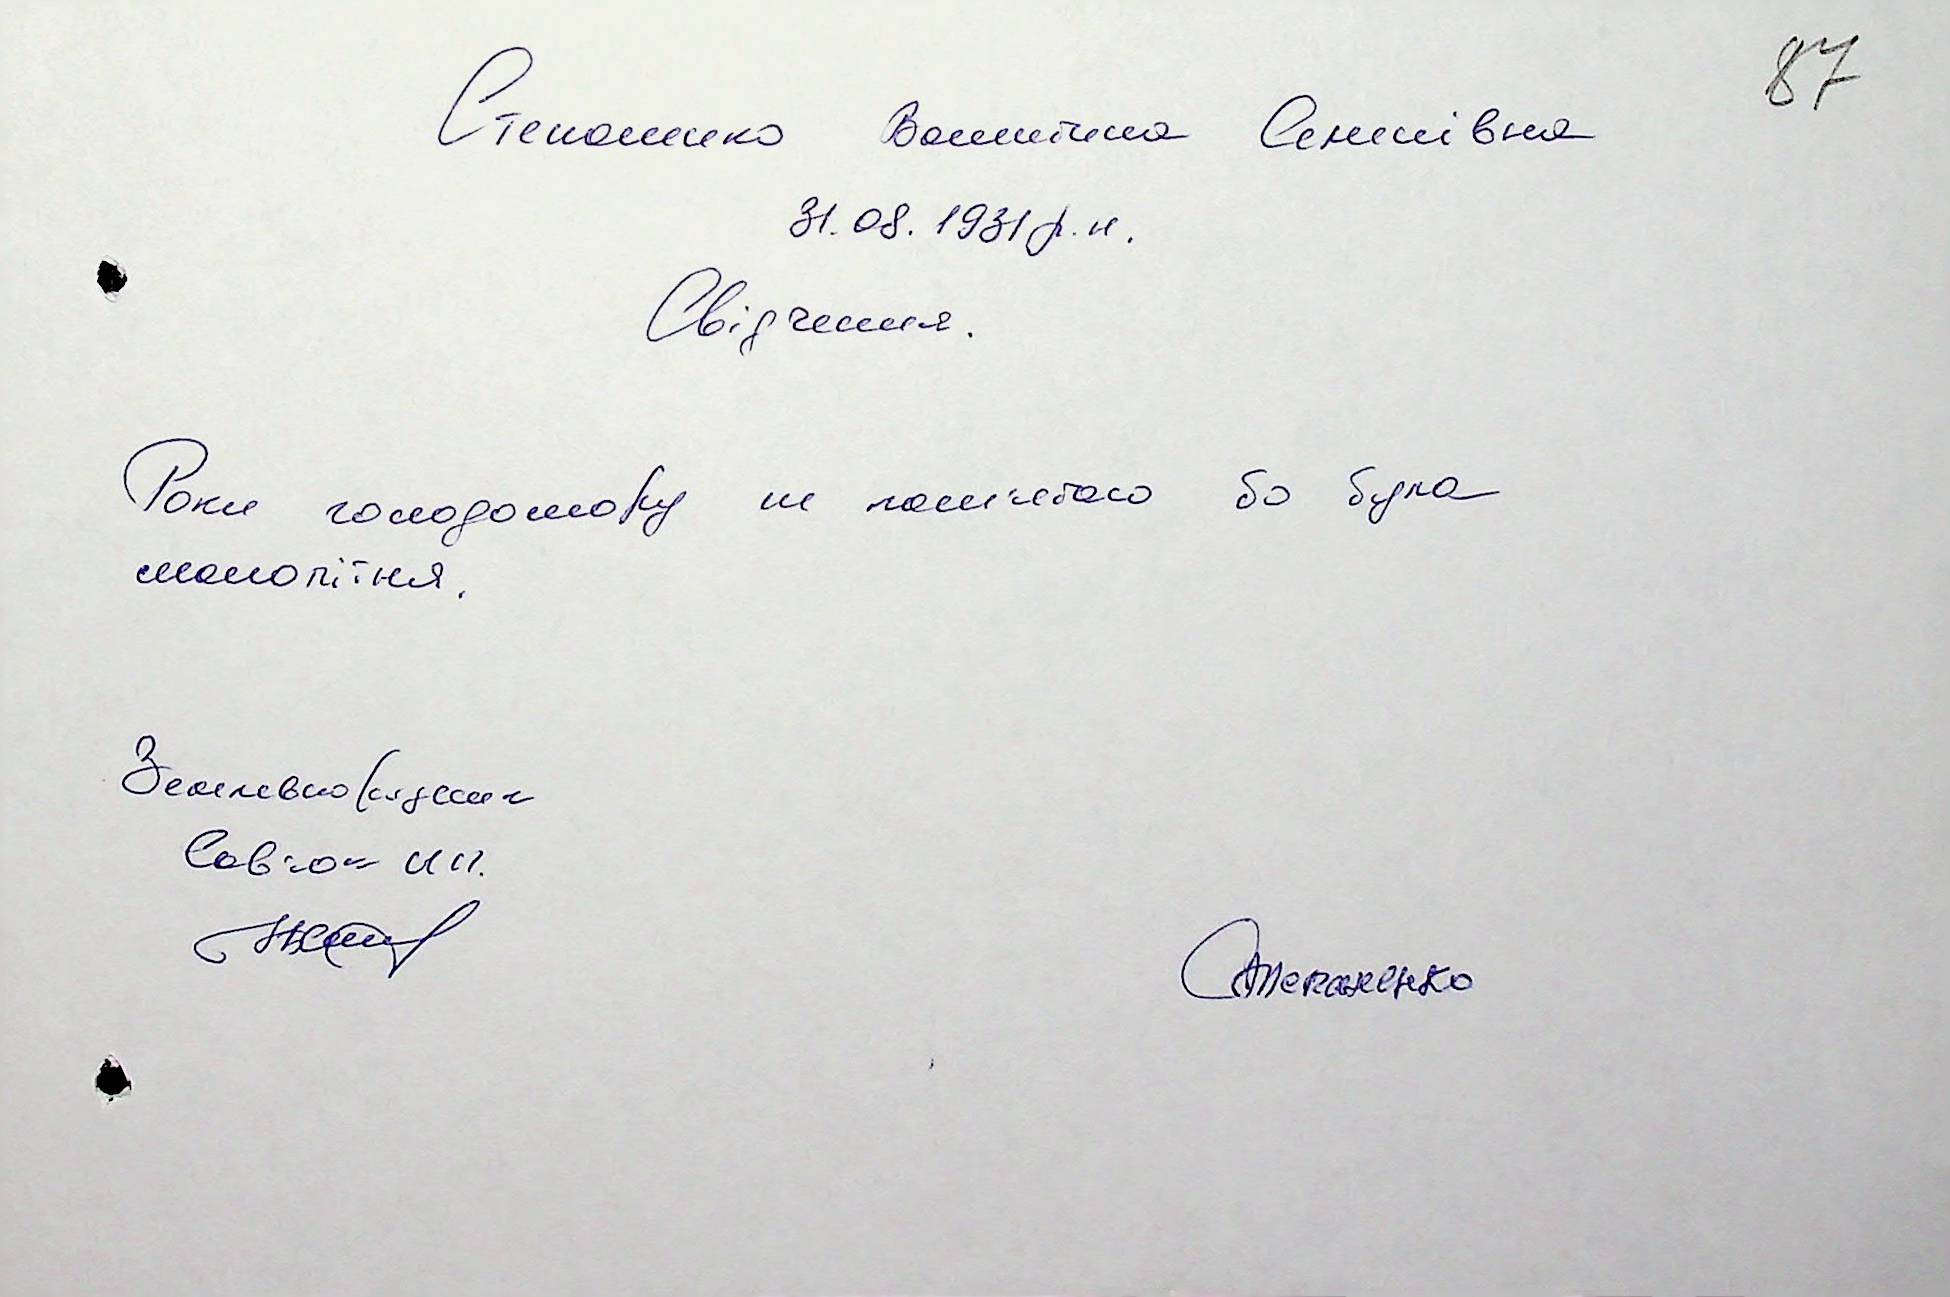 87
Степаненко Валентина Семенівна
31.08.1931 р.н.
Свідчення.
Роки голодомору не пам'ятаю бо була
малолітня.
Землевпорядник
Степаненко